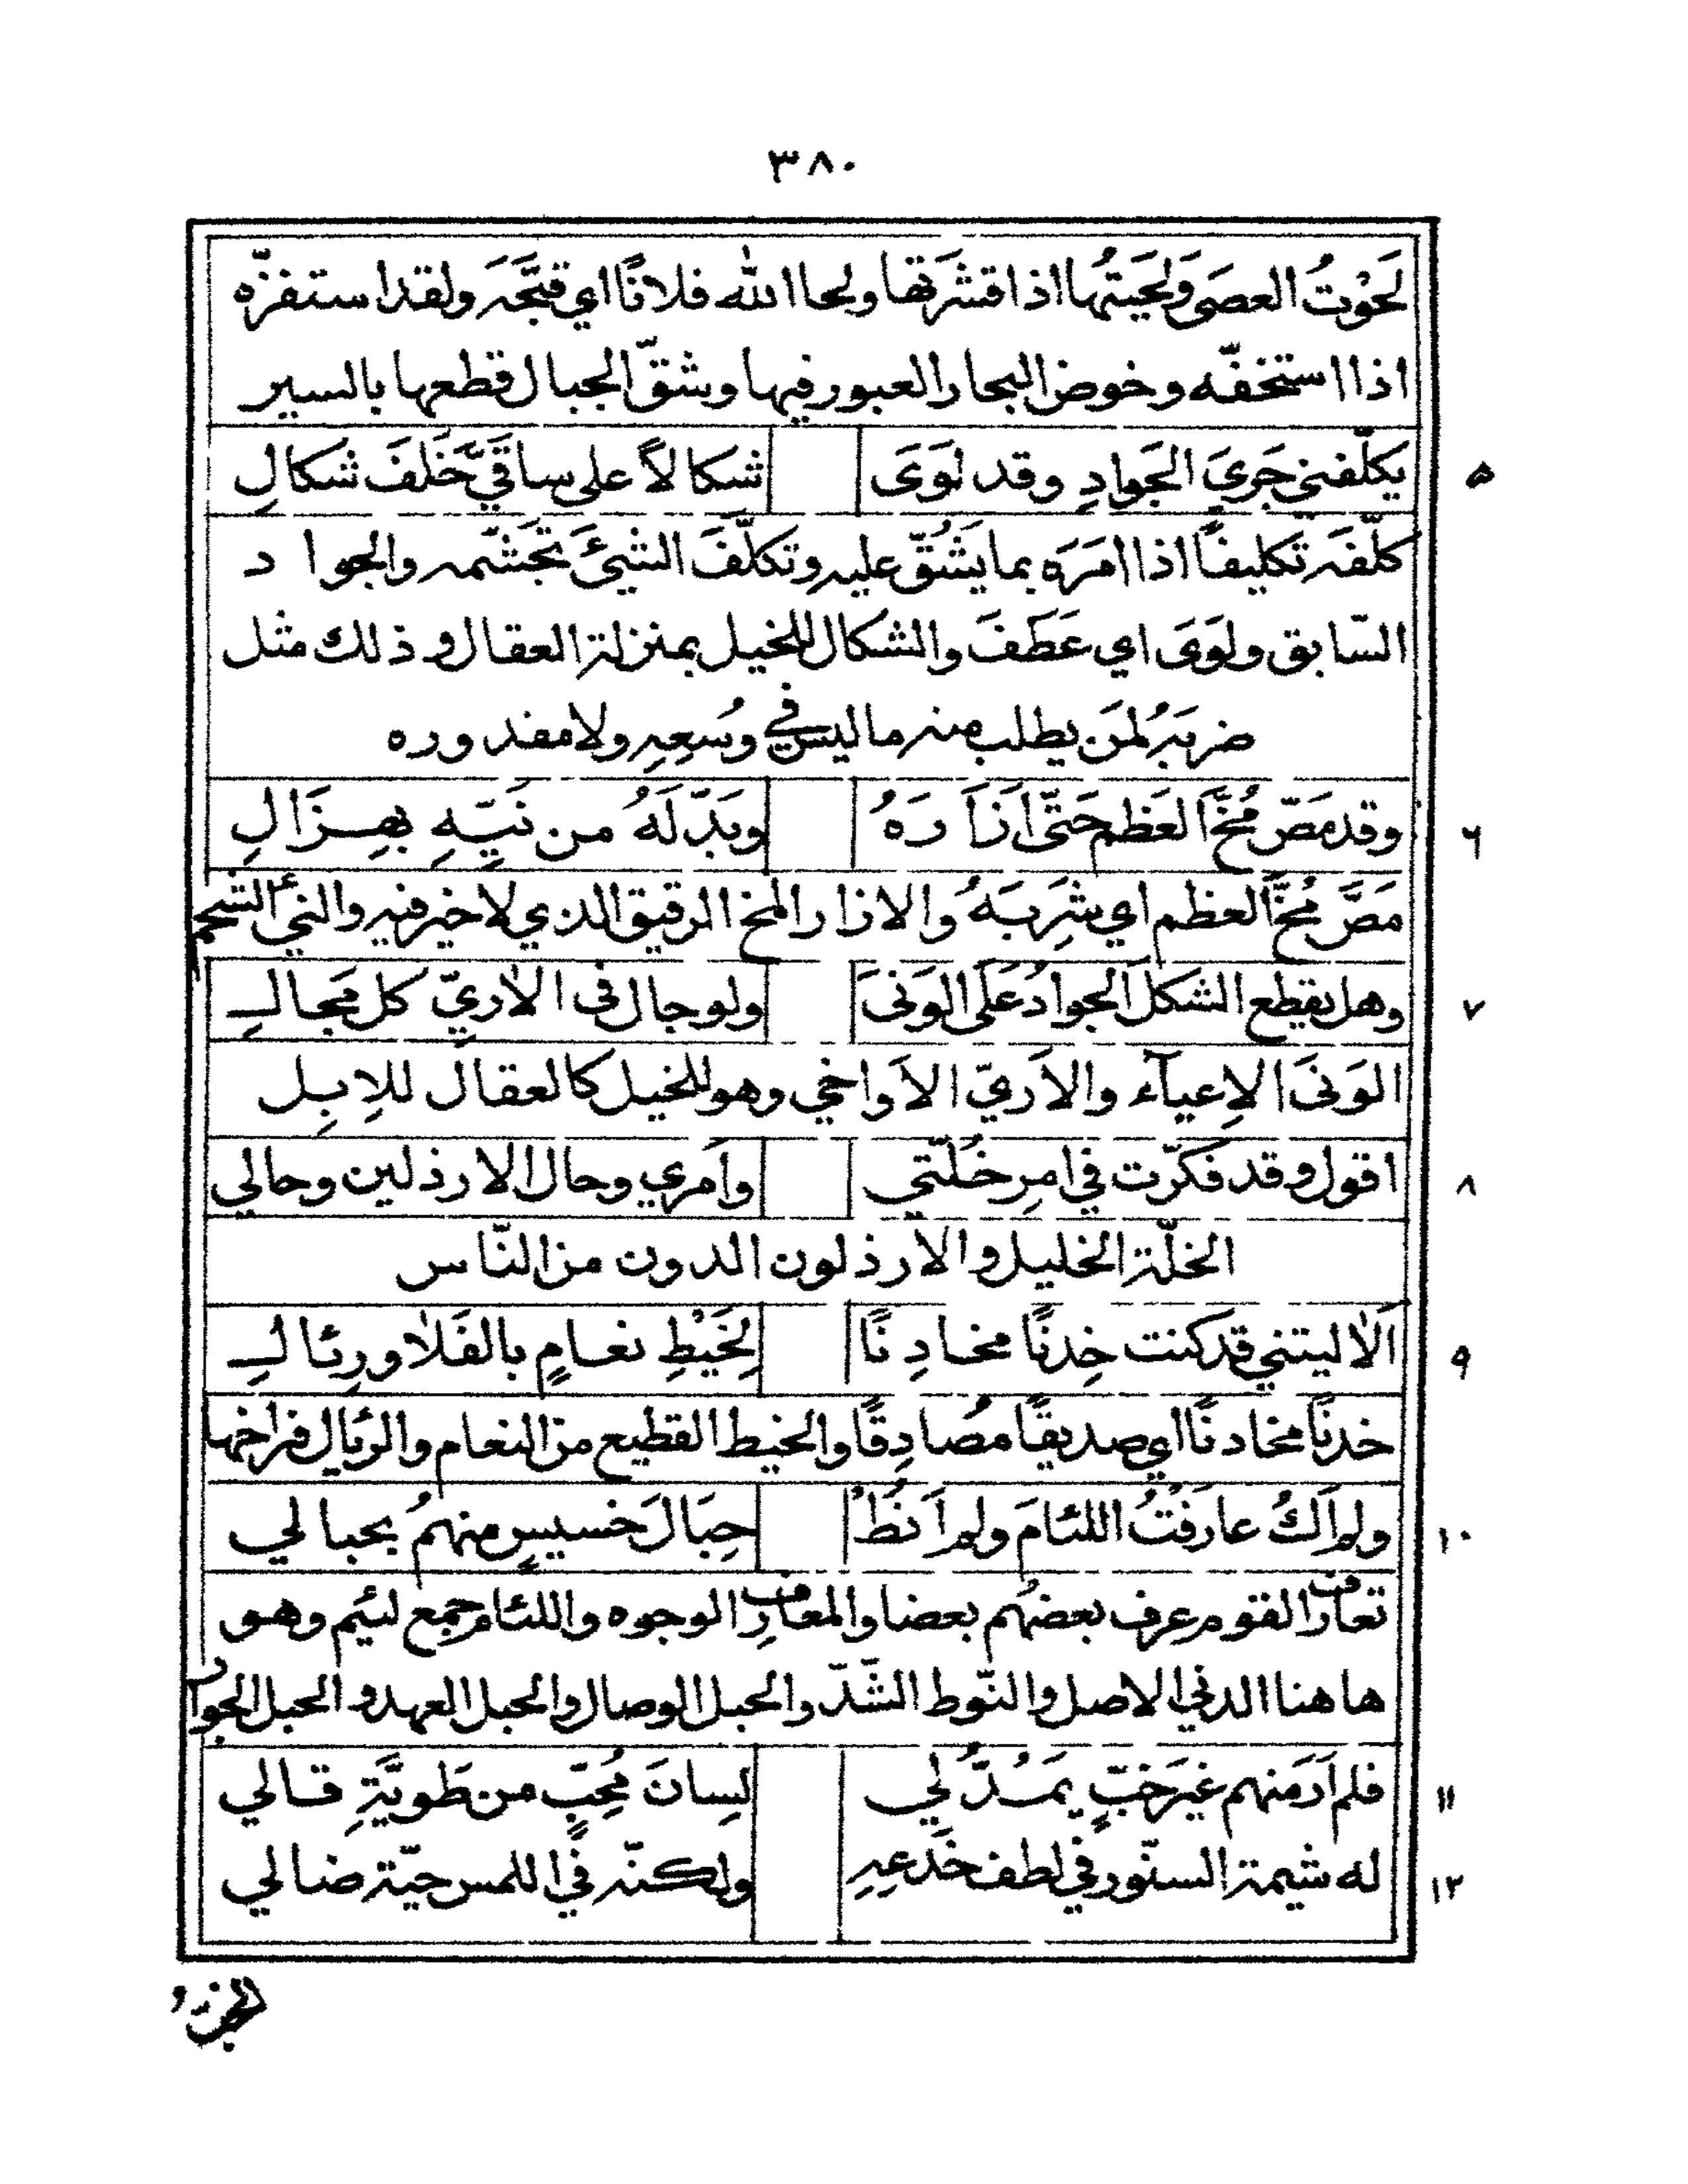 ٣٨٠
لَحَوْتُ العصَى وَلَحَيتُها اذا قشَرتَها ولحا الله فلانًا اي قبَّحَہ ولقد استفزّه
اذا استخفّه وخوض البحار العبور فيها وشقّ الجبال قطعها بالسير
٥ يكلّفني جَريَ الجَوادِ وقد لَوَىَ شكالاً على ساقَيَّ خَلفَ شكالِ
كلّفَہ تكليفاً اذا امَرَہ بما يَشُقّ عليہ وتكلّفَ الشيئَ تجَشّمہ والجوا د
السّابق ولَوَىَ اي عَطَفَ والشكال للخيل بمنزلۃ العقال وذلك مثل
ضربَہُ لمَن يطلب منہ ما ليس في وُسعِہِ ولا مقدوره
٦ وقد مَصّ مُخَّ العَظم حَتّى اَزَا رَہُ وبَدّ لَهُ من نَيّهِ بهِزَالِ
مَصَّ مُخَّ العظم اي شَرِبَهُ والازار المخ الرقيق الذي لا خير فيہ والنيّ الشحم
٧ وهل يقطع الشكلَ الجوادُ عَلَى الوَنَىَ ولو جال في الآريّ كل مَجالِ
الوَنَىَ الإعيآء والآريّ الاَواخي وهو للخيل كالعقال للاِبِل
٨ اقول وقد فكّرت في امرِ خُلّتي واَمري وحال الارذلين وحالي
الخلّۃ الخليل والارذلون الدون من النّاس
٩ اَلا ليتني قد كنت خِدنًا مخادِ نًا لِخَيْطِ نعامٍ بالفَلا ورِئالِ
خدنًا مخادنًا اي صديقًا مصُادِقًا والخيط القطيع من النعام والرئال فراخها
١٠ ولم اَكُ عارَفْتُ اللئامَ ولم اَنُطْ حِبَالَ خسيسٍ منهمُ بحبالي
تعارف القوم عرف بعضهُم بعضا والمعارِف الوجوه واللئام جمع لئيم وهو
هاهنا الدني الاصل والنّوط الشّدّ والحبل الوصال والحبل العهد والحبل الجوار
١١ فلم اَرَ منهم غيرَ خبٍّ يمَُدّ لي لسِانَ مُحِبّ من طَويَّۃِ قالي
١٢ له شيمۃ السنّور في لطف خَدعِہِ ولكنّہ في اللمس حيّۃ ضالي